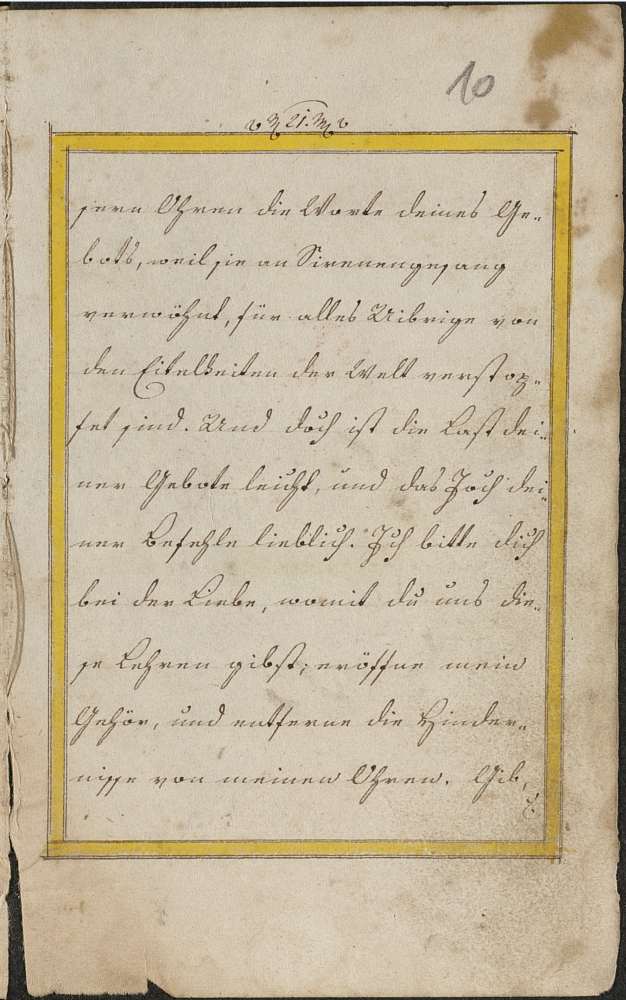 10
21.
sern Ohren die Worte deines Ge-
bots, weil sie an Sirenengesang
verwöhnt, für alles Uibrige von
den Eitelkeiten der Welt verstop-
fet sind. Und doch ist die Last dei-
ner Gebote leicht, und das Joch dei-
ner Befehle lieblich. Ich bitte dich
bei der Liebe, womit du uns die-
se Lehren gibst; eröffne mein
Gehör, und entferne die Hinder-
nisse von meinen Ohren. Gib,